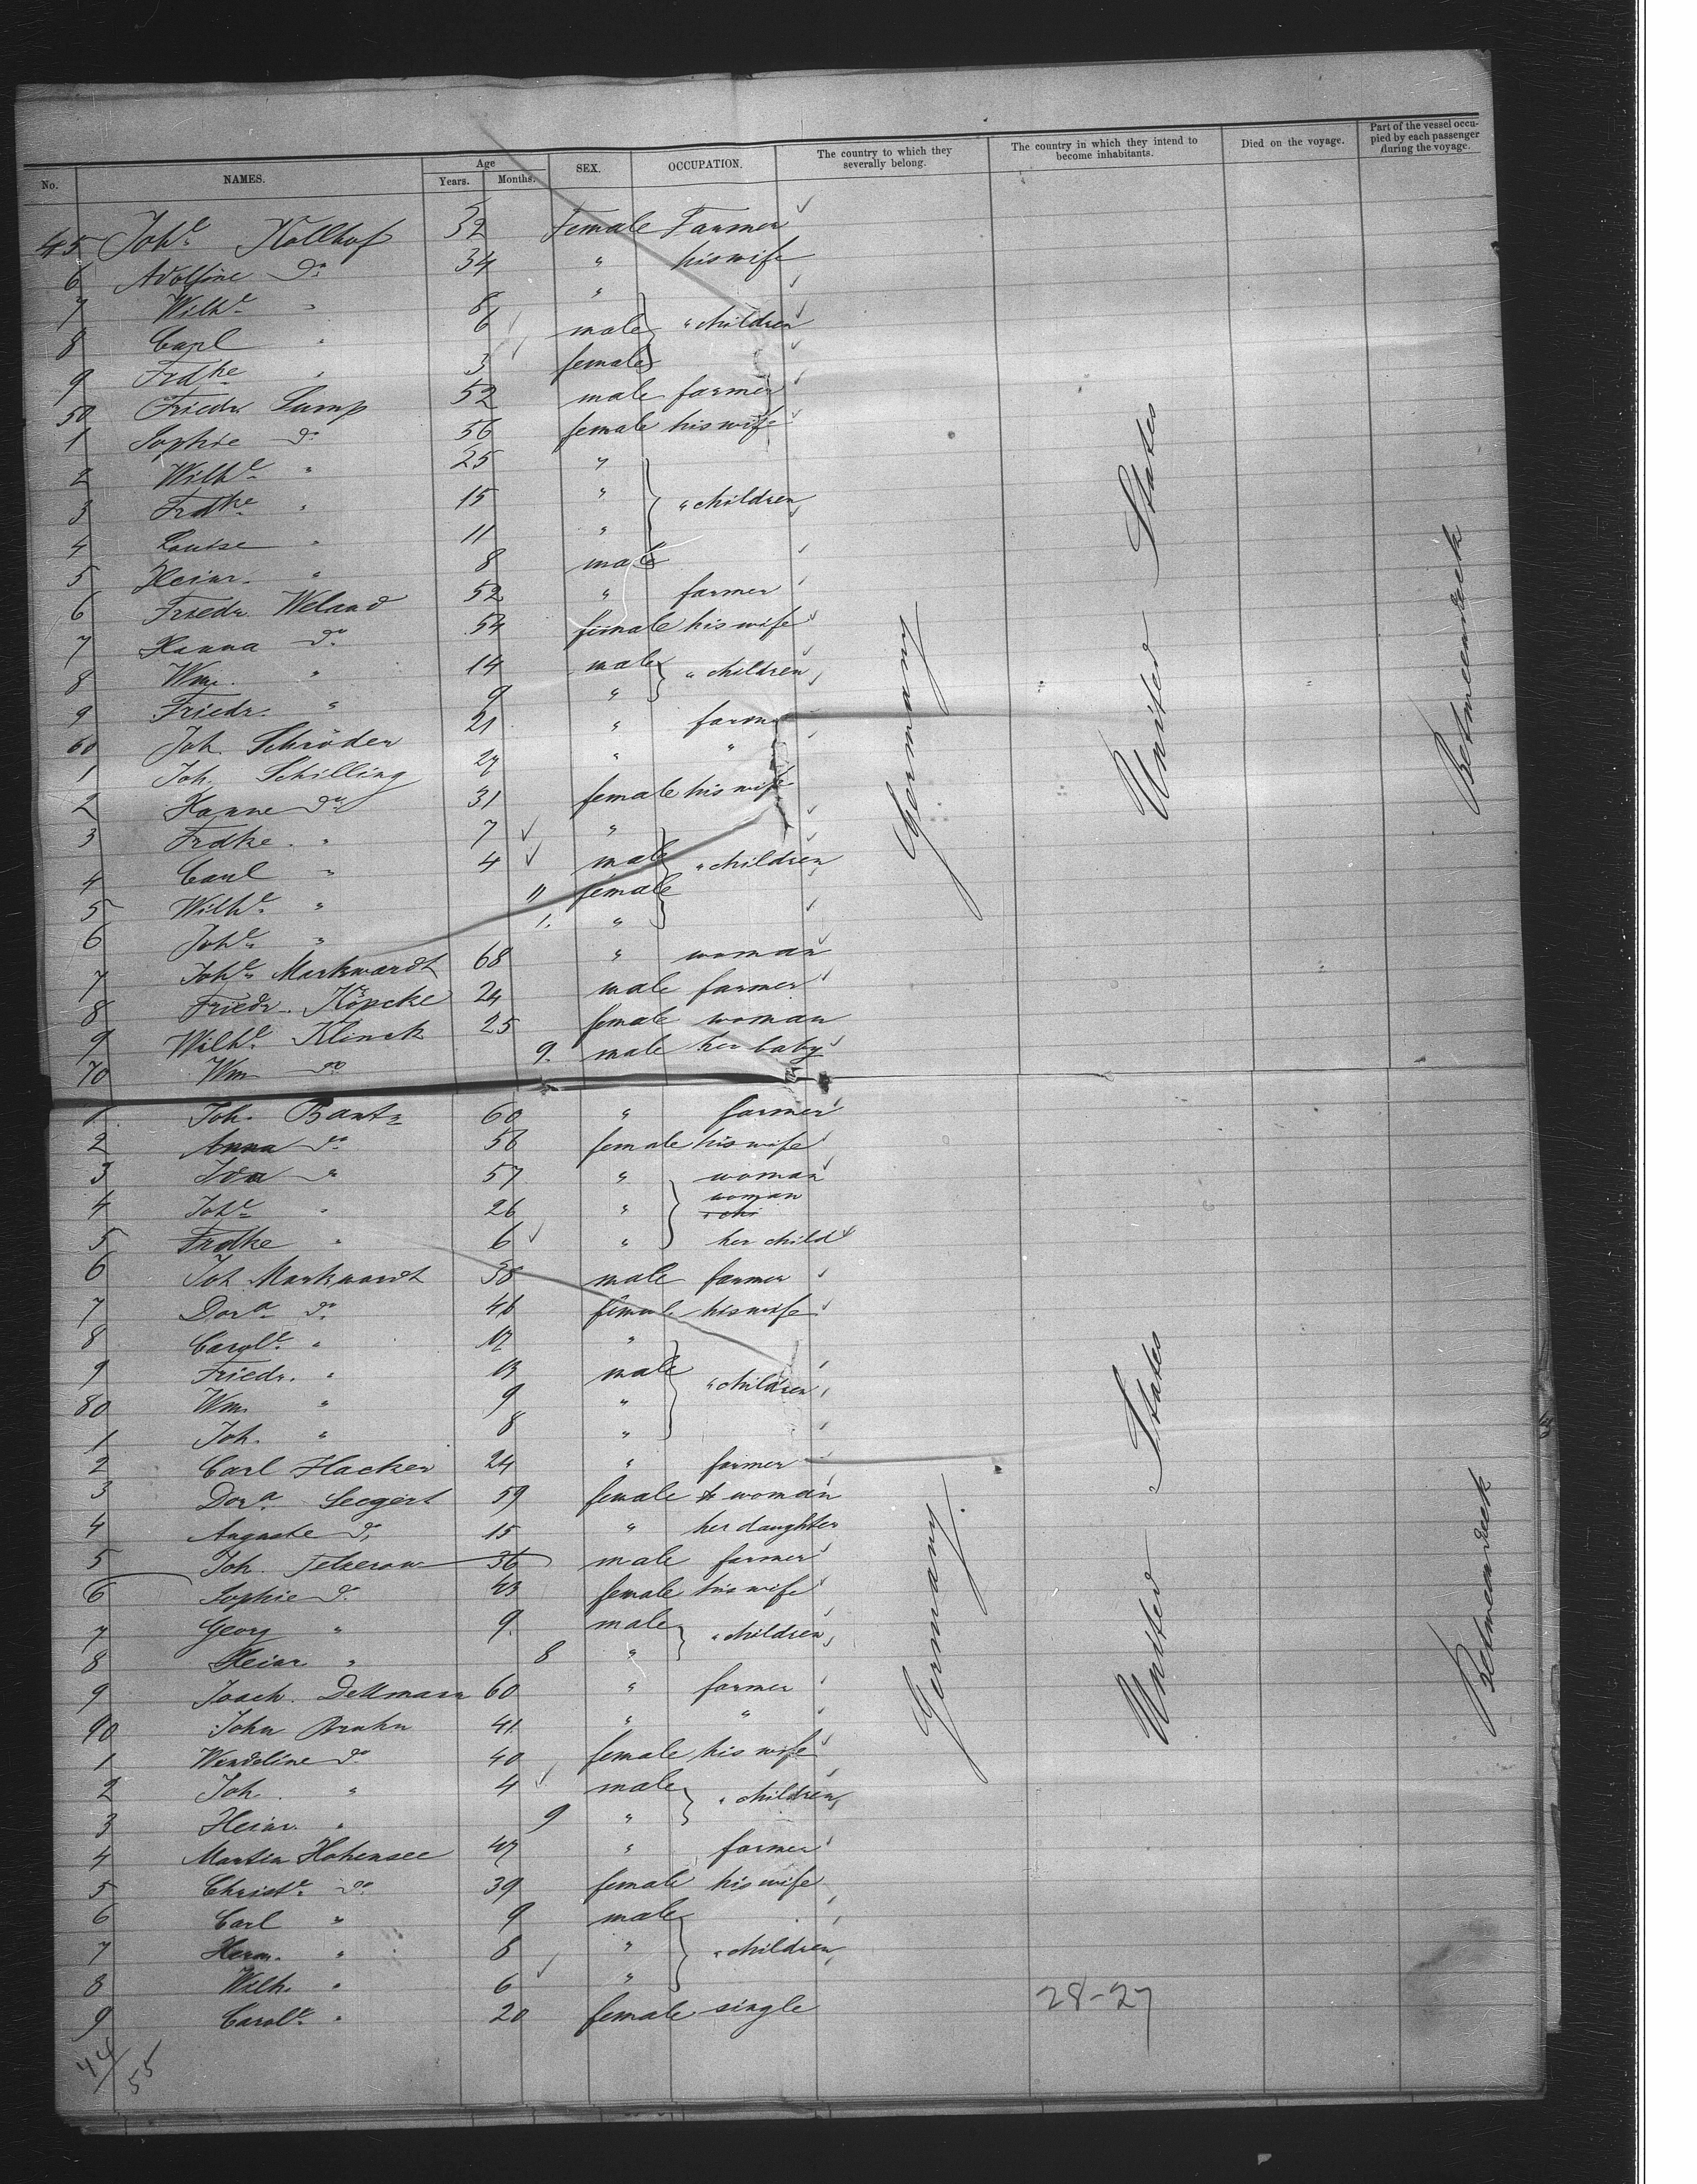 No. NAMES. Age Years. Months. SEX. OCCUPATION. The country to which they severally belong. The country in which they intend to become inhabitants. Died on the voyage. Part of the vessel occupied by each passenger during the voyage.
45 Johe Kollhof 32 Female Farmer
6 Adolfine do 34 " his wife
7 Wilhe " 8 "
8 Carl " 6 male " children
9 Frdke " 3 female
50 Friedr. Lump 52 male farmer
1 Sophie do 56 female his wife
2 Wilhe " 25 "
3 Frdke " 15 " " children
4 Louise " 11 "
5 Heinr. " 8 male
6 Friedr. Weland 52 " farmer
7 Hanna do 54 female his wife
8 Wm. " 14 male " children
9 Friedr. " 9 "
60 Joh. Schröder 21 " farmer
1 Joh. Schilling 27 " "
2 Hanne do 31 female his wife
3 Frdke. " 7 "
4 Carl " 4 male " children
5 Wilhe " 11 female
6 Johe " 1. "
7 Johe Markwardt 68 " woman
8 Friedr. Köpcke 24 male farmer
9 Wilhe Klinck 25 female woman
70 Wm do 9. male her baby
1 Joh. Bantz 60 " farmer
2 Anna do 56 female his wife
3 Ida " 57 " woman
4 Johe " 26 " woman
5 Frdke " 6 " her child
6 Joh Markwardt 38 male farmer
7 Dora do 46 female his wife
8 Carole " 17 "
9 Friedr. " 13 male " children
80 Wm. " 9 "
1 Joh. " 8 "
2 Carl Hacker 24 " farmer
3 Dora Seegert 59 female woman
4 Auguste do 15 " her daughter
5 Joh. 36 male farmer
6 Sophie do 43 female his wife
7 Georg " 9. male " children
8 Heinr " 8 "
9 Joach. Dettmann 60 " farmer
90 John Bruhn 41. " "
1 Wendeline do 40 female his wife
2 Joh. " 4 male " children
3 Heinr. " 9 "
4 Martin Hohensee 47 " farmer
5 Christe do 39 female his wife
6 Carl " 9 male
7 Herm. " 8 " " children
8 Wilh. " 6 "
9 Carole " 20 female single
Germany
United States
Betweendeck
Germany.
United States
Betweendeck
28-27
44/55